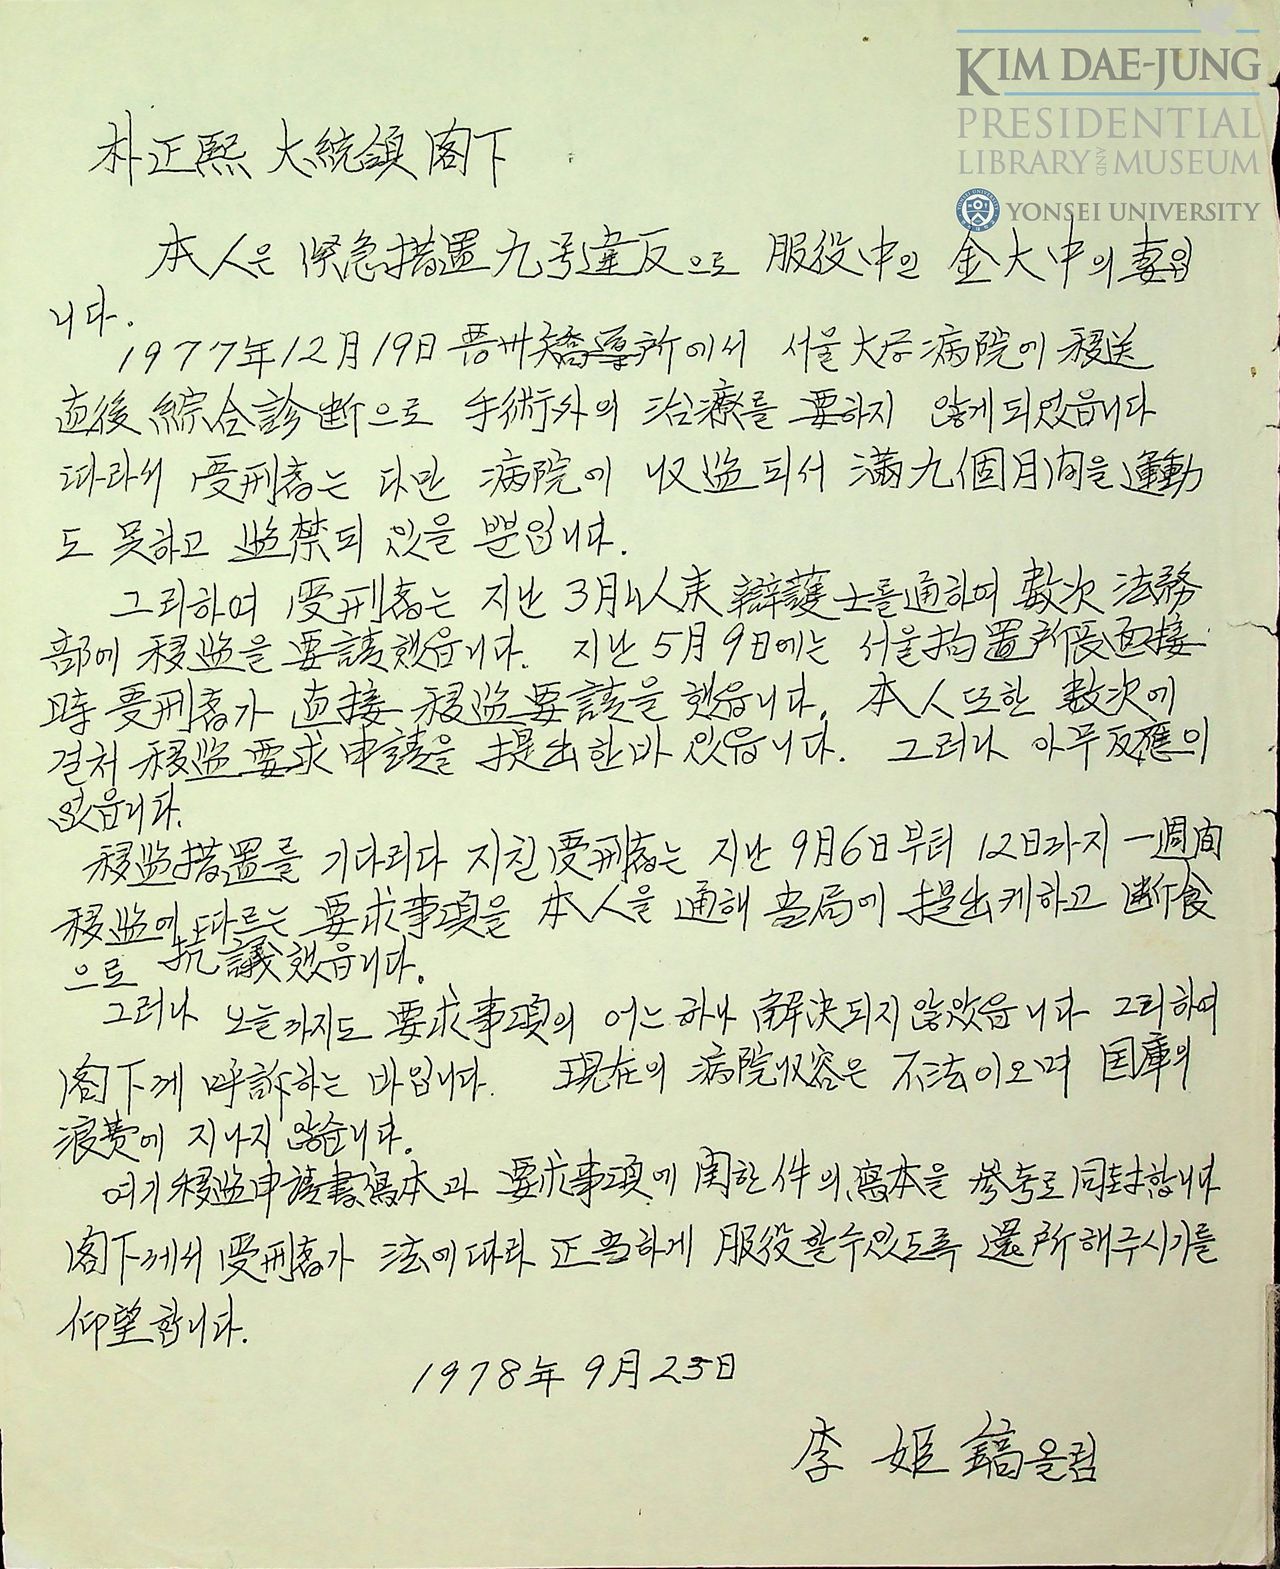 KIM DAE-JUNG
PRESIDENTIAL
LIBRARY AND MUSEUM
YONSEI UNIVERSITY
朴正熙 大統領 閣下
本人은 緊急措置九号違反으로 服役中인 金大中의 妻입
니다.
1977年12月19日 晋州矯導所에서 서울大学病院에 移送
直後 綜合診断으로 手術外의 治療를 要하지 않게 되었읍니다
따라서 受刑者는 다만 病院에 収监되서 滿九個月间을 運動
도 못하고 监禁되 있을 뿐입니다.
그리하여 受刑者는 지난 3月以来 辯護士를 通하여 數次 法務
部에 移监을 要請했읍니다. 지난 5月9日에는 서울拘置所長面接
時 受刑者가 直接 移监要請을 했읍니다. 本人 또한 數次에
걸처 移监要求申請을 提出한바 있읍니다. 그러나 아무反應이
없읍니다.
移监措置를 기다리다 지친 受刑者는 지난 9月6日부터 12日까지 一週间
移监에 따르는 要求事項을 本人을 通해 当局에 提出케하고 断食
으로 抗議했읍니다.
그러나 오늘까지도 要求事項의 어느 하나 解決되지 않았읍니다 그리하여
閣下께 呼訴하는 바입니다. 現在의 病院収容은 不法이오며 国庫의
浪費에 지나지 않습니다.
여기 移监申請書寫本과 要求事項에 関한 件의 寫本을 參考로 同封합니다
閣下께서 受刑者가 法에따라 正当하게 服役할수있도록 還所해주시기를
仰望합니다.
1978年 9月 25日
李 姬 鎬 올림